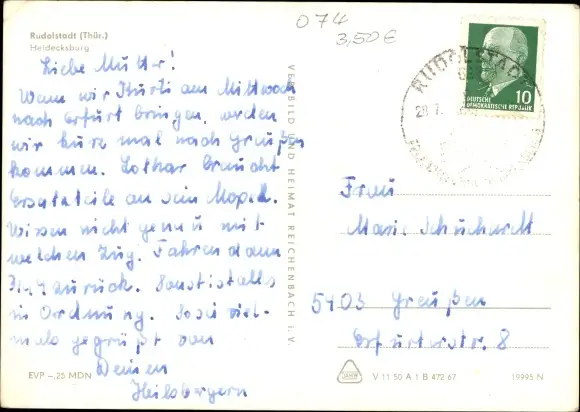 Rudolstadt (Thür.)
Heidecksburg
074
3,50€
Liebe Mutter!
Wenn wir Kurti am Mittwoch
nach Erfurt bringen, werden
wir kurz mal nach Greußen
kommen. Lothar braucht
Ersatzteile an sein Moped.
Wissen nicht genau mit
welchen Zug. Fahren dann
zurück. Sonst ist alls
in Ordnung. Seid viel-
mals gegrüßt von
Deinen
Heilsbergern
EVP –,25 MDN
VERLAG BILD UND HEIMAT REICHENBACH i. V.
RUDOLSTADT
28.7.
DEUTSCHE
DEMOKRATISCHE REPUBLIK
10
Frau
Marie Schuchardt
5403 Greußen
Erfurterstr. 8
V 11 50 A 1 B 472 67
19995 N